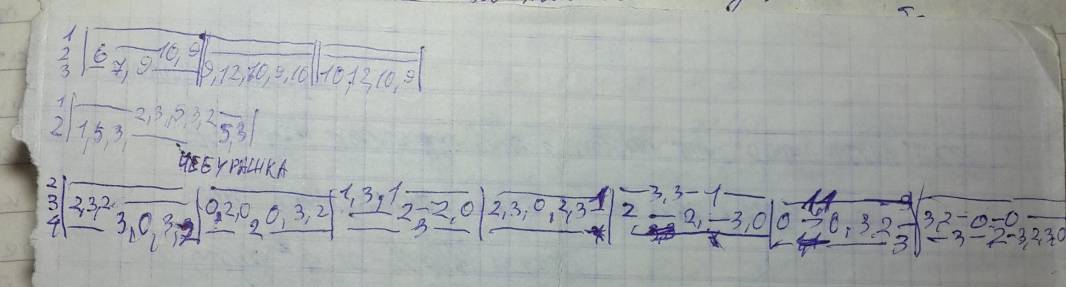 1
2 | 6 — 10, 9 || — || — |
3 | — 7, 9 — || 9, 12, 10, 9, 10 || 10, 12, 10, 9 |
1 | — 2, 3, 5, 3, 2 — |
2 | 1, 5, 3, — 5, 3 |
ЧЕБУРАШКА
2 | — | — | 1, 3, 1 — | — | — 3, 3 — 1 — | — | —
3 | 2, 3, 2 — | 0, 2, 0 — 0, 3, 2 | — 2 — 2, 0 | 2, 3, 0, 2, 3 | 2 — 2, — 3, 0 | 0 — 0, 3, 2 | 3, 2 — 0 — 0 —
4 | — 3, 0, 3, | — 2 — | — 3 — | — | — | — 3 | — 3 — 2 — 3, 2, 3, 0